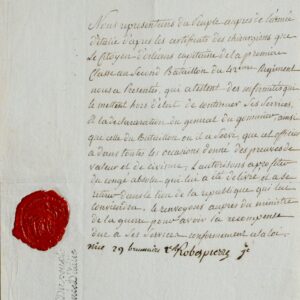 Nous representans du Peuple aupres de l'armée
d'italie d'apres les certificats des chirurgiens que
Le Citoyen d'orleans capitaine de la premiere
Classe au Second Bataillon du Regiment
nous a Presentés, qui attestent des infirmités qui
le mettent hors d'etat de continuer Ses Services,
Et la declaration du general du gommier ainsi
que celle du Bataillon ou il a Servi, que cet officier
a dans toutes les occasions donné des preuves de
valeur et de civisme. L'autorisons a profiter
du congé absolu qui lui a été delivré et a se
retirer dans le lieu de la republique qui lui
conviendra. le renvoyons aupres du ministre
de la guerre pour avoir la recompense
due a Ses Services conformement a la loi.
nice 29 brumaire Robespierre Je